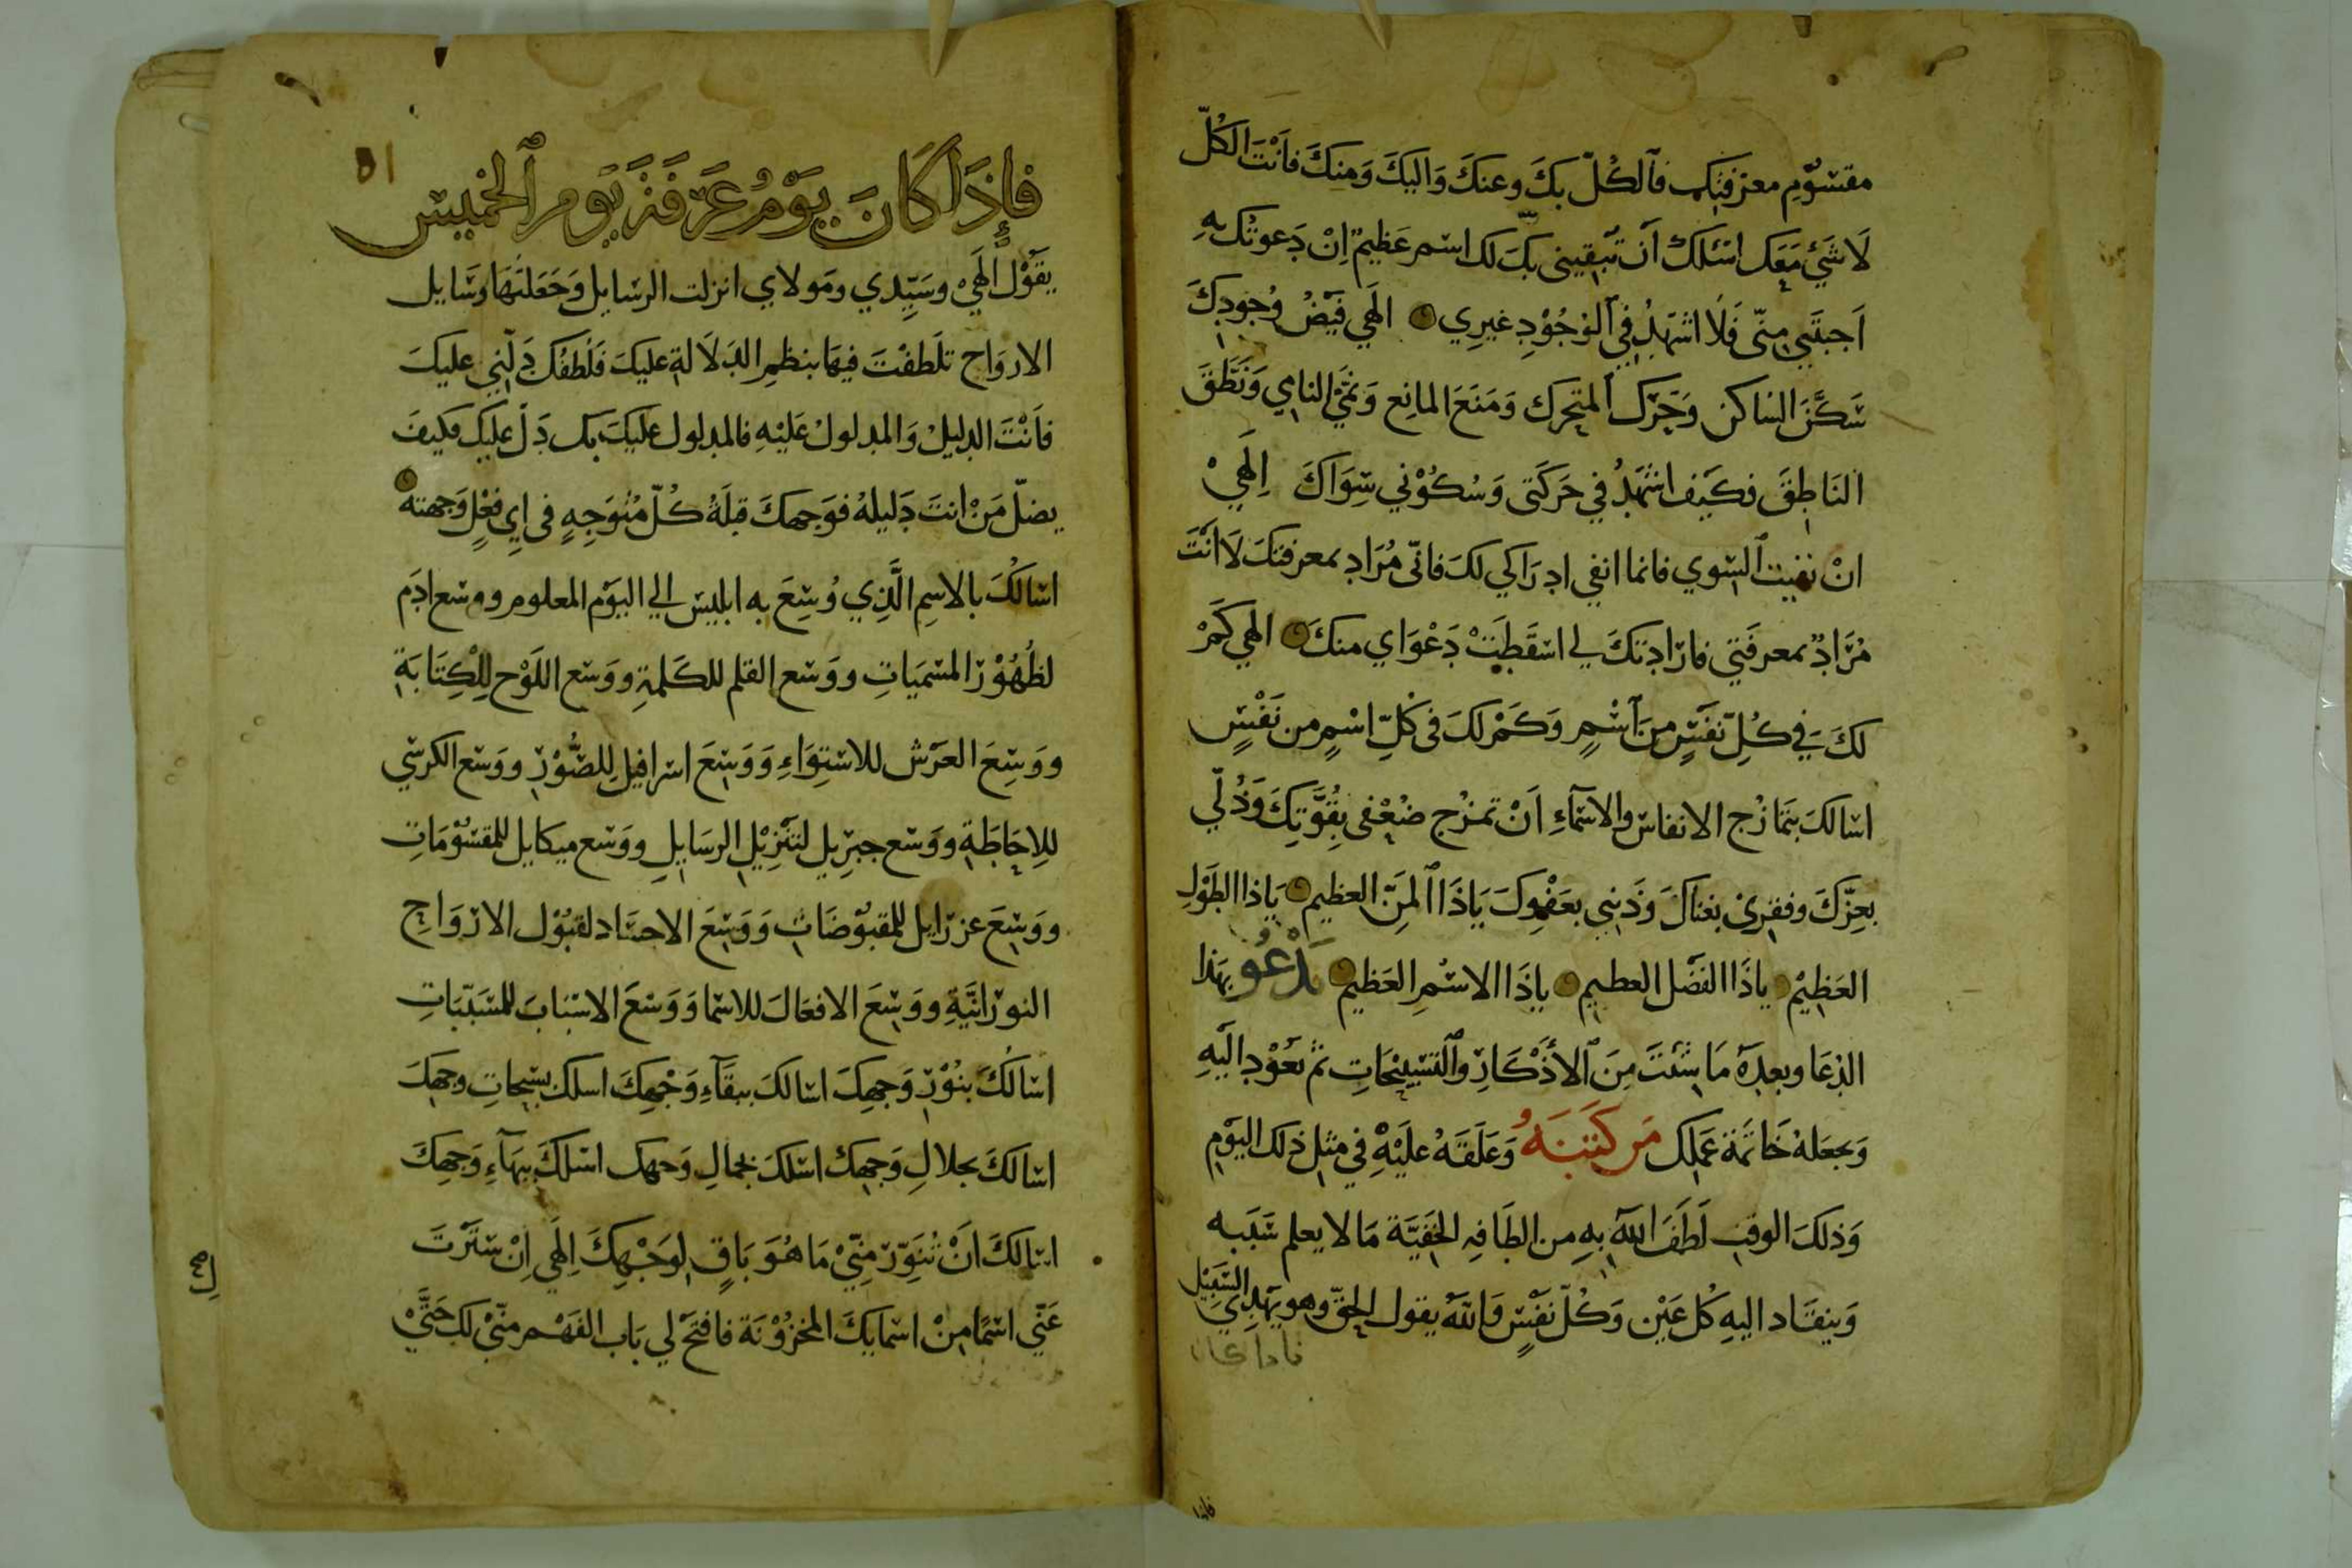 مقسُوْمِ معرفتِك فآلكُلّ بكَ وعنكَ وَاليكَ وَمِنكَ فاَنْتَ الكُلّ
لَا شَيْءَ مَعَك اسْئَلكَ اَن تبقيني بكَ لك اسْم عَظيمٌ اِنْ دَعوتُك بهِ
اَجبتَني مِنّى فَلَا اشهَدُ في الوُجُوْدِ غيرِي الَهي فَيْضُ وُجودِكَ
سَكَّنَ السَاكن وَحَرّك المتحرك وَمَنَعَ المانِع وَنمّى النامي وَنَطَّقَ
النَاطِقَ فكَيف اشهَدُ في حَركَتى وَسُكُوْني سِوَاكَ اِلَهيْ
انْ نفيت السّوي فانما انفي ادرَاكي لكَ فانّى مُرَاد بمعرفتكَ لَا اَنْتَ
مُرَادٌ بمعرفَتي فارَادتكَ لي اسْقَطَتْ دَعْوَاي منكَ الهي كَمْ
لكَ في كُلِّ نفَسٍ مِن اَسْمٍ وَكَمْ لكَ فى كُلِّ اسْمٍ من نَفَسٍ
اسَالكَ بتمَازُج الانفاسِ والاسمآءِ اَنْ تمزج ضُعْفى بقُوَّتِكَ وَذُلّي
بعِزّكَ وفقرِيْ بغناكَ وَذَنبي بعَفْوِكَ يَاذَا المَنّ العظيم يَاذا الطَوْلِ
العَظيْم ياذَا الفَضْل العطيم ياذَا الاسْمِ العَظيم يَدْعُو بهَذا
الدعَا وبعدَهُ مَا شئتَ مِنَ الأَذْكَارِ والتسْبيْحَاتِ ثم تعُوْد اليْهِ
وَتجعَلهُ خَاتمَة عَملِك مَن كَتَبَهُ وَعَلقَهُ عَليْهِ في مثل ذلك اليَوْمِ
وَذلكَ الوقتِ لَطَفَ اللهُ بهِ من الطَافِهِ الخفيَّة مَا لا يعلم سَبَبه
وَينقَاد اليهِ كُل عَيْن وَكُلّ نفَسٍ وَاللهُ يقول الحقّ وهو يهدي السَبيْل
فاذا كان
فاذا
٥١
فإذَا كَانَ يَوْمُ عَرَفَةَ يَوْم الخميس
يقوْل الَهيْ وسَيّدي ومَولاي انزلت الرسَايل وَجَعَلتَهَا وَسَايل
الاروَاح تلَطفْتَ فيهَا بنظمِ الدلَالةِ عليكَ فَلُطفُكَ دَلّني عليكَ
فاَنْتَ الدليلْ وَالمدلولُ عَليْهِ فالمدلول عليكَ بك دَلّ عليك فكيفَ
يضلّ مَنْ انتَ دَليلهُ فوَجهكَ قبلَةُ كُلّ مُتوَجِهٍ فى اي فعْلٍ وَجهته
اسَالكَ بالاسمِ الَّذِي وُسِعَ به ابليسَ الي اليَوْم المعلوم ووسَع ادَم
لظُهُوْر المسمَيَاتِ ووَسَع القلم للكَلمةِ ووَسَع اللَوْح لِلْكِتَابَةِ
ووَسِعَ العَرْش للاسْتِوَاءِ وَوَسِعَ اسرافيل لِلصُّوْرِ ووَسَع الكرسي
للِاحَاطَةِ ووَسَع جبرِيل لتنْزِيْلِ الرسَايلِ ووَسَع ميكايل للمقسُوْمَاتِ
ووَسِعَ عزرَايل للمقبوْضَاتِ وَوَسِعَ الاجسَاد لقبُوْل الارْوَاحِ
النورَانيَّةِ ووَسِعَ الافعَالَ للاسْمَا وَوَسَعَ الاسْبَابَ للمُسَبّبَاتِ
اسَالُكَ بنُوْرِ وَجهِكَ اسَالكَ ببقَآءِ وَجْهِكَ اسلك بسبحَاتِ وجهِكَ
اسَالكَ بجلالِ وَجهِكَ اسْلكَ بجمَالِ وَجهك اسْلكَ ببهَآءِ وَجهِكَ
اسَالكَ اَنْ تُنَوِّرَ منّيْ مَا هُوَ بَاقٍ لوَجْهِكَ اِلَهي اِنْ سَتَرْتَ
عَنّي اسْمًا مِنْ اسْمايكَ المخزُوْنَة فافتَحْ لي بَاب الفَهْم منّيْ لك حَتَّيْ